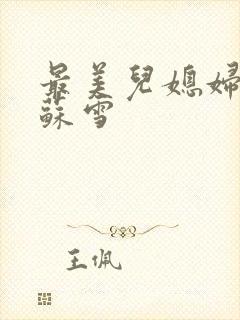 最美兒媳婦
蘇雪
王佩